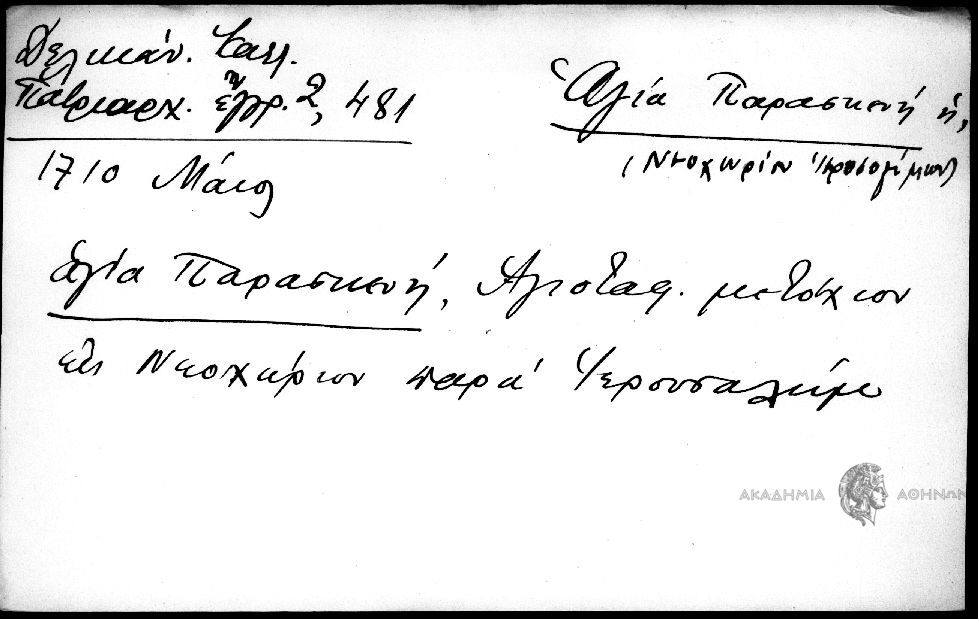 Δελικάν. Καλλ.
Πατριαρχ. ἔγγρ. 2, 481
Ἁγία Παρασκευή ἡ,
(Νεοχωρίον Ἱεροσολύμων)
1710 Μάιος
ἁγία Παρασκευή, Ἁγιοταφ. μετόχιον
εἰς Νεοχώριον παρά Ἱερουσαλήμ
ΑΚΑΔΗΜΙΑ ΑΘΗΝΩΝ